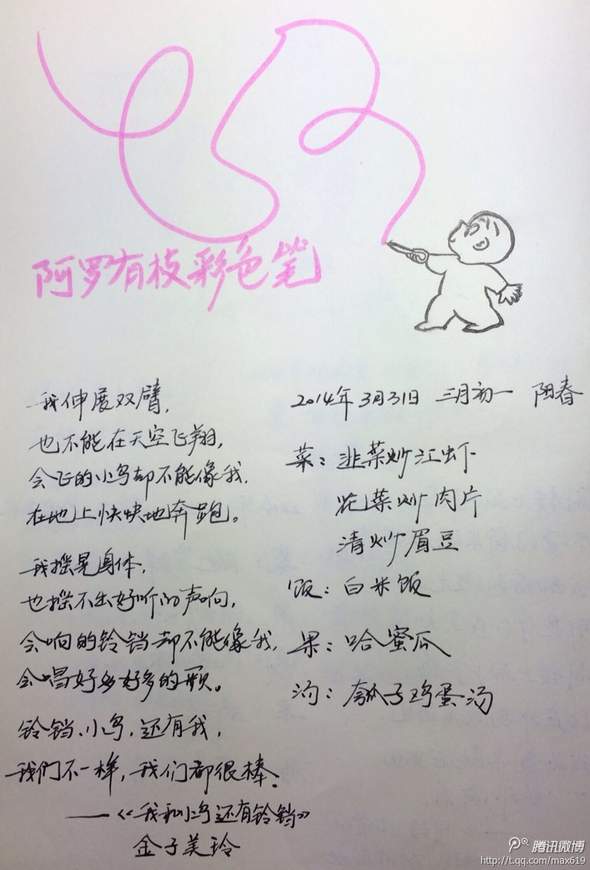 阿罗有枝彩色笔
我伸展双臂,
也不能在天空飞翔,
会飞的小鸟却不能像我,
在地上快快地奔跑。
我摇晃身体,
也摇不出好听的声响,
会响的铃铛却不能像我,
会唱好多好多的歌。
铃铛、小鸟、还有我,
我們不一样,我们都很棒。
——《我和小鸟还有铃铛》
金子美玲
2014年3月31日 三月初一 阳春
菜:韭菜炒江虾
花菜炒肉片
清炒眉豆
饭:白米饭
果:哈蜜瓜
汤:瓠子鸡蛋汤
腾讯微博
http://t.qq.com/max619